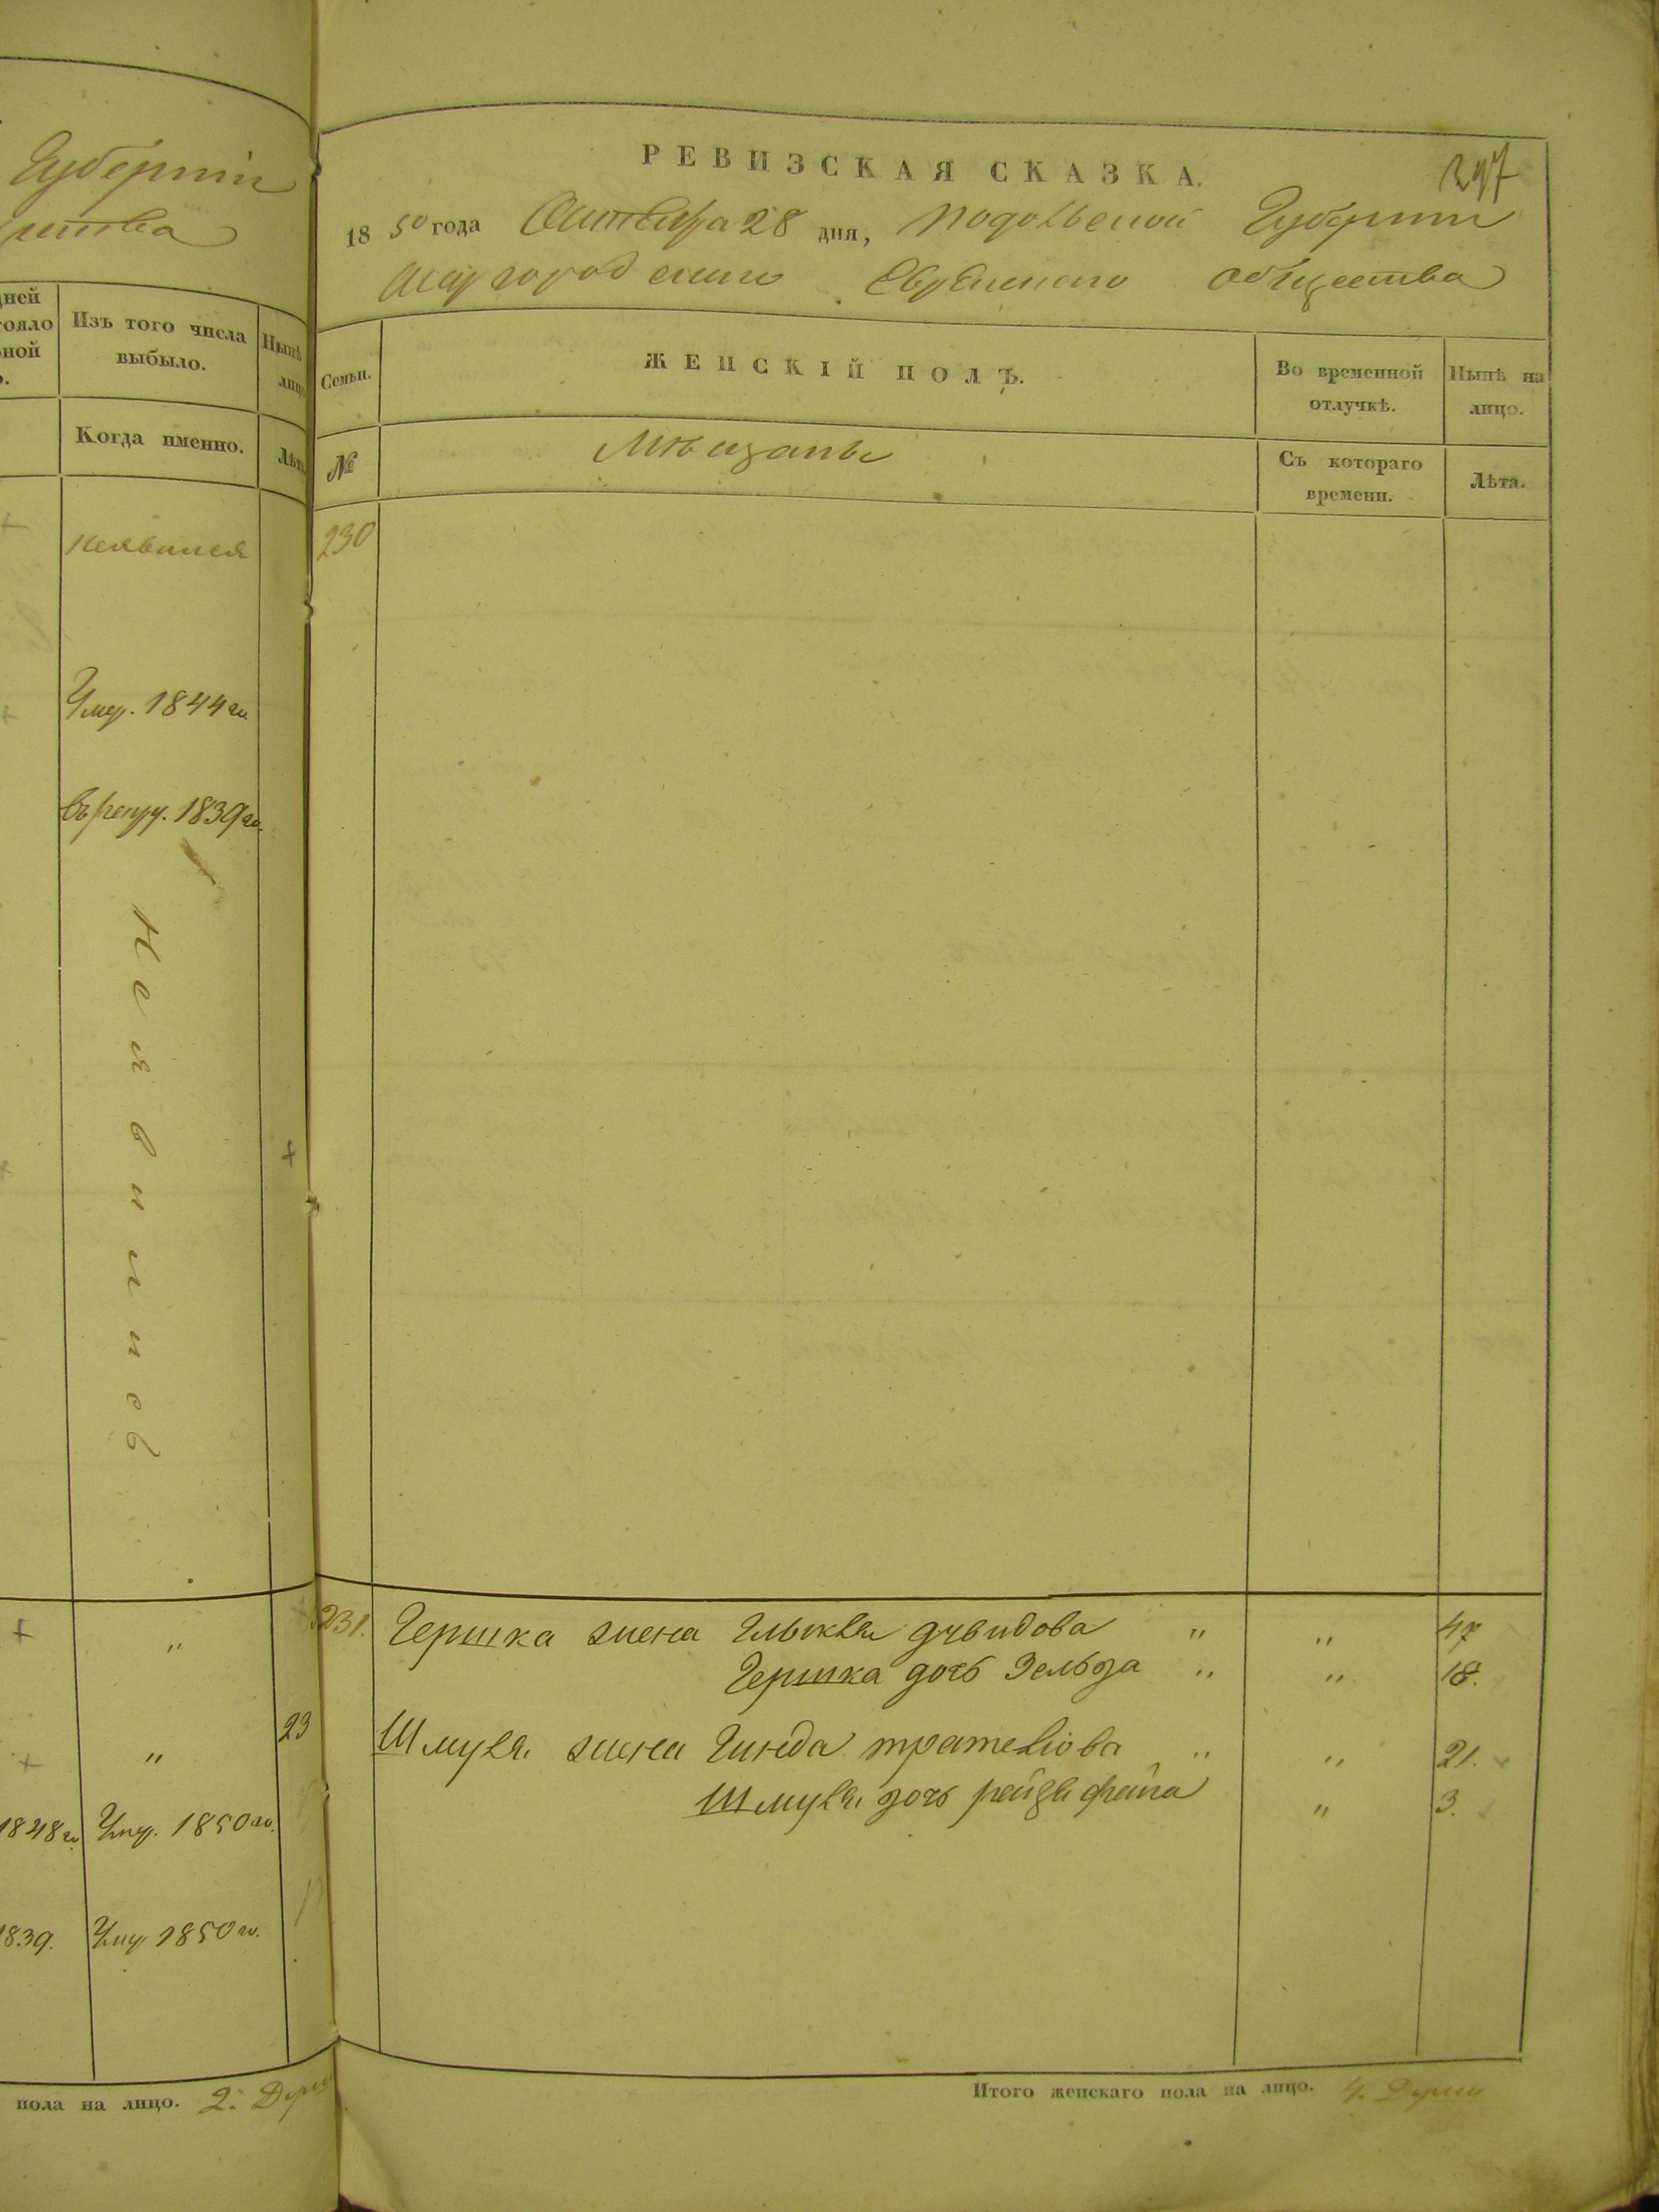 Губерніи
дней
Изъ того числа
выбыло.
Нынѣ
лицо
Когда именно.
Лѣта
неявился
Умер. 1844 го.
въ рекру. 1839 го.
Неявились
"
23
"
1848 го. Умер. 1850 го.
1839. Умер 1850 го.
пола на лицо. 2. Души
РЕВИЗСКАЯ СКАЗКА.
297
1850 года Октября 28 дня, Подольской Губерніи
Шаргородскаго Еврейскаго общества
Семьи.
ЖЕНСКІЙ ПОЛЪ.
Во временной
отлучкѣ.
Нынѣ на
лицо.
№
Мѣщане
Съ котораго
времени.
Лѣта.
230
231. Гершка жена давидова " " 47
Гершка дочь Зельда " " 18.
Шмуля жена Гинда " " 21.
Шмуля дочь рейзя фейга " 3.
Итого женскаго пола на лицо. 4. Души